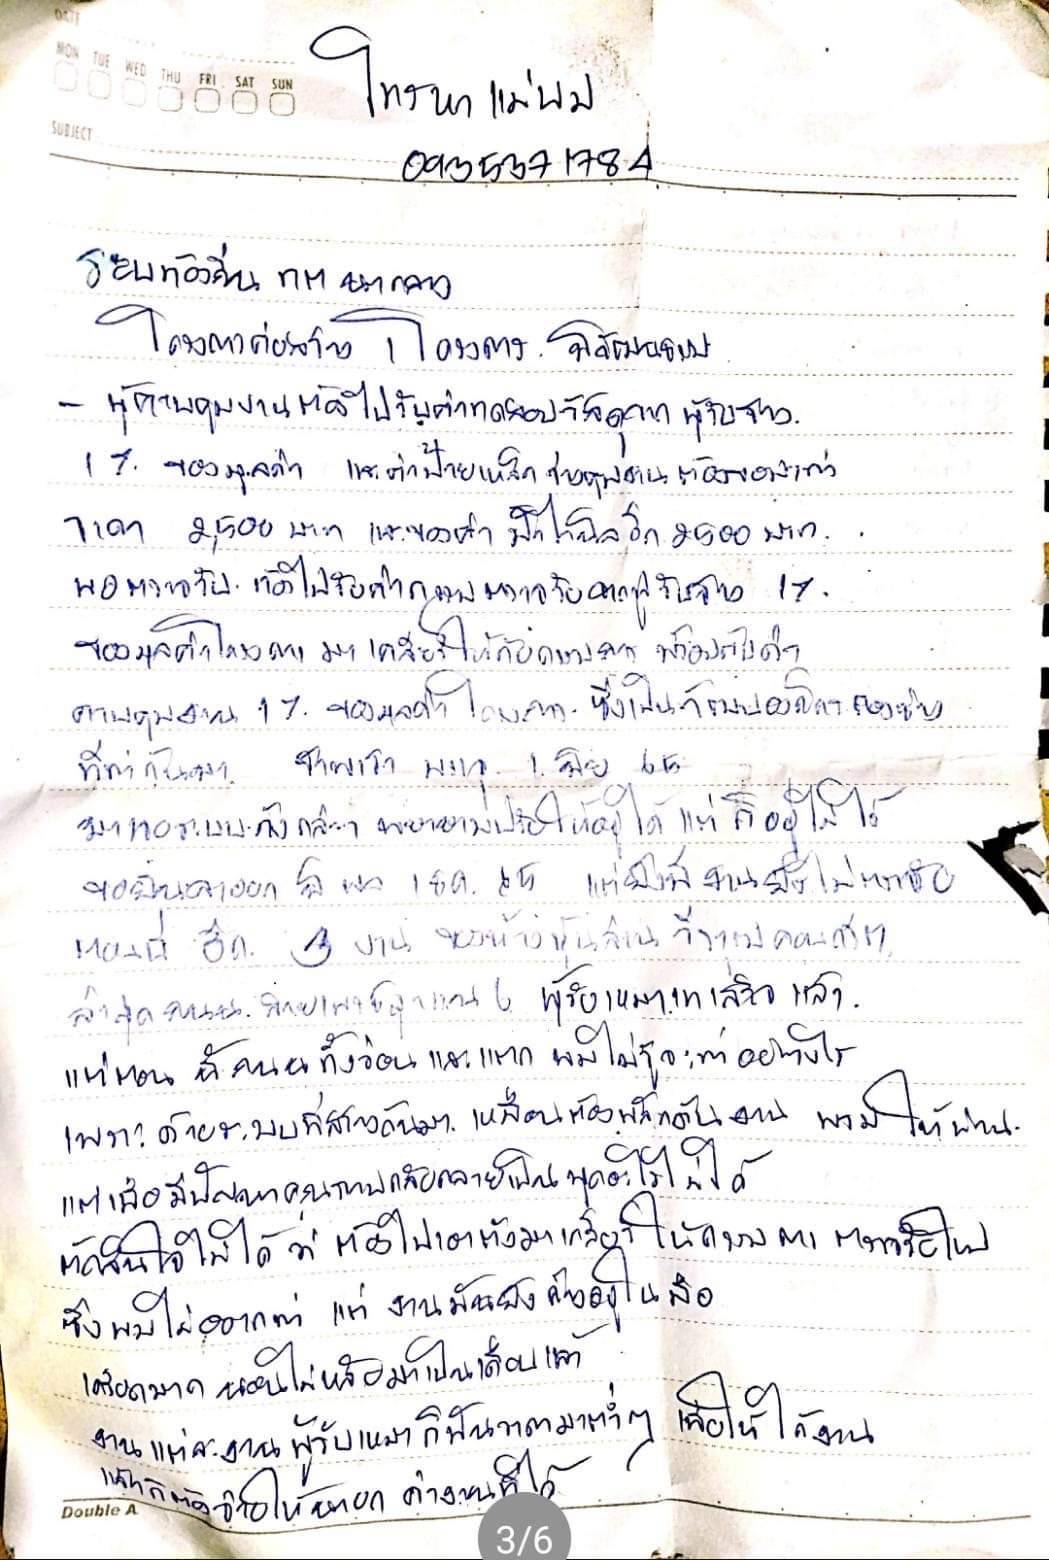 DATE
MON TUE WED THU FRI SAT SUN
SUBJECT
โทรหา แม่ผม
0935371784
ระบบท้องถิ่น ทต นากลาง
โครงการก่อสร้าง 1 โครงการ
- ผู้ควบคุมงานต้องไปรับค่าทดสอบวัสดุจาก ผู้รับจ้าง.
1 %. ของมูลค่า และค่าป้ายเหล็ก ช่างคุมงาน ต้อง
ราคา 2,500 บาท และของค่า ป้ายไวนิล อีก 2500 บาท.
พอตรวจรับ. ต้องไปรับค่ากรรมการตรวจรับจากผู้รับจ้าง 1%.
ของมูลค่าโครงการ มาเคลียร์ให้กับกรรมการ พร้อมกับค่า
ควบคุมงาน 1 %. ของมูลค่าโครงการ. ซึ่งเป็น ของช่าง
ที่ทำกันมา. ข้าพเจ้า 1. มิย 65
มาเจอระบบดังกล่าว พยายามปรับให้อยู่ได้ แต่ ก็อยู่ไม่ได้
ขอยื่นลาออก มีผล 1 ธค. 65 แต่ยังมี งานยังไม่ตรวจรับ
ตอนนี้ อีก. 3 งาน ของห้างหุ้นส่วน
ล่าสุด ถนน. 6 ผู้รับเหมาเทเสร็จ แล้ว.
แต่ตอน นี้ ถนน ทั้งร่อน และแตก ผมไม่รู้จะทำอย่างไร
เพราะ ด้วยระบบที่สร้างกันมา. เหมือนต้องผลักดัน งาน ให้ผ่าน.
แต่เมื่อ มีปัญหาคุณภาพกลับกลายเป็น พูดอะไรไม่ได้
ตัดสินใจไม่ได้ ต้องไปเอาตังมาเคลียร์ ให้กรรมการ ตรวจรับ
ซึ่งผมไม่อยากทำ แต่ งานมันยัง ค้างอยู่ในมือ
เครียดมาก นอนไม่หลับมาเป็นเดือนแล้ว
งาน แต่ละงาน ผู้รับเหมา ก็ฟันราคามาต่ำๆ เพื่อให้ ได้งาน
แล้วก็ต้อง จ่ายให้นายก ค่างานที่ได้
Double A
3/6